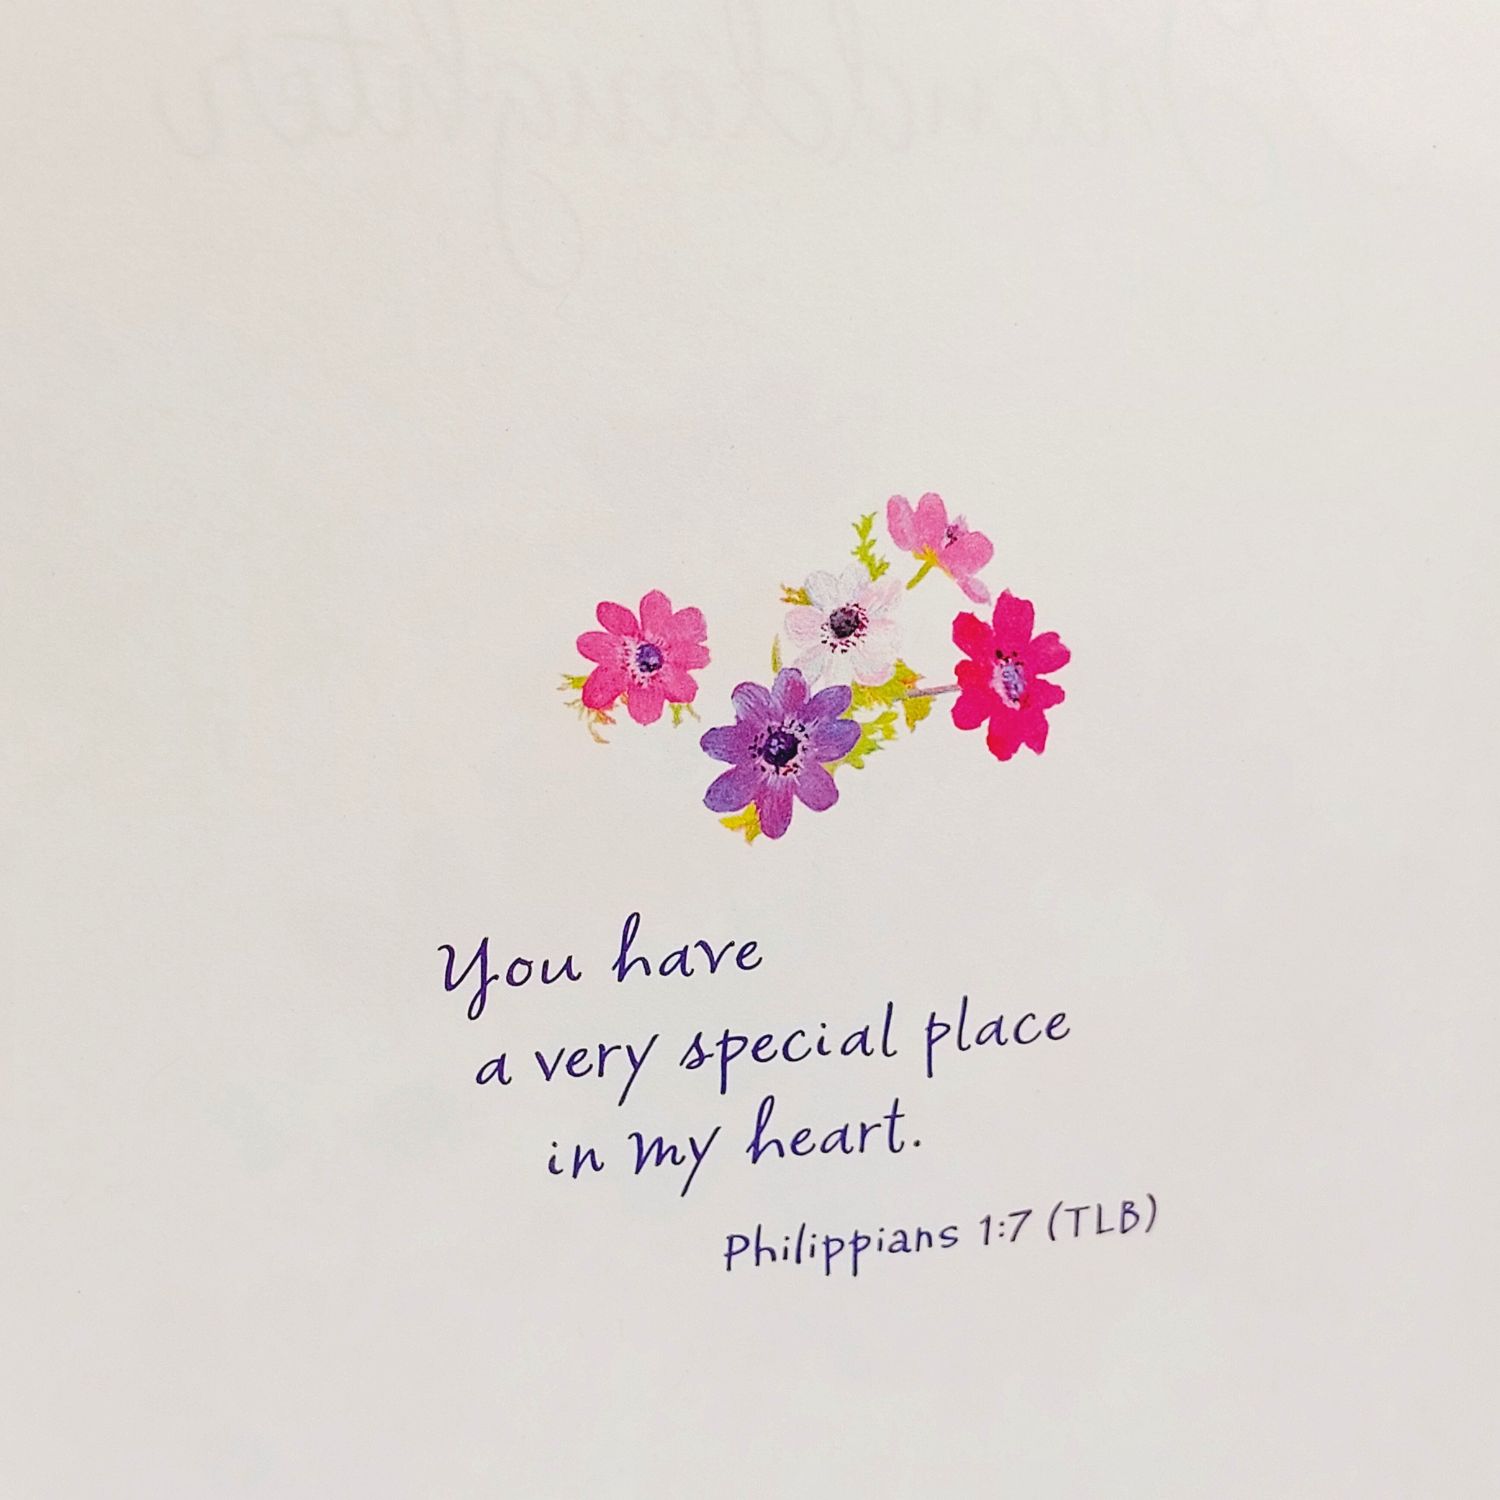 Granddaughter
You have
a very special place
in my heart.
Philippians 1:7 (TLB)